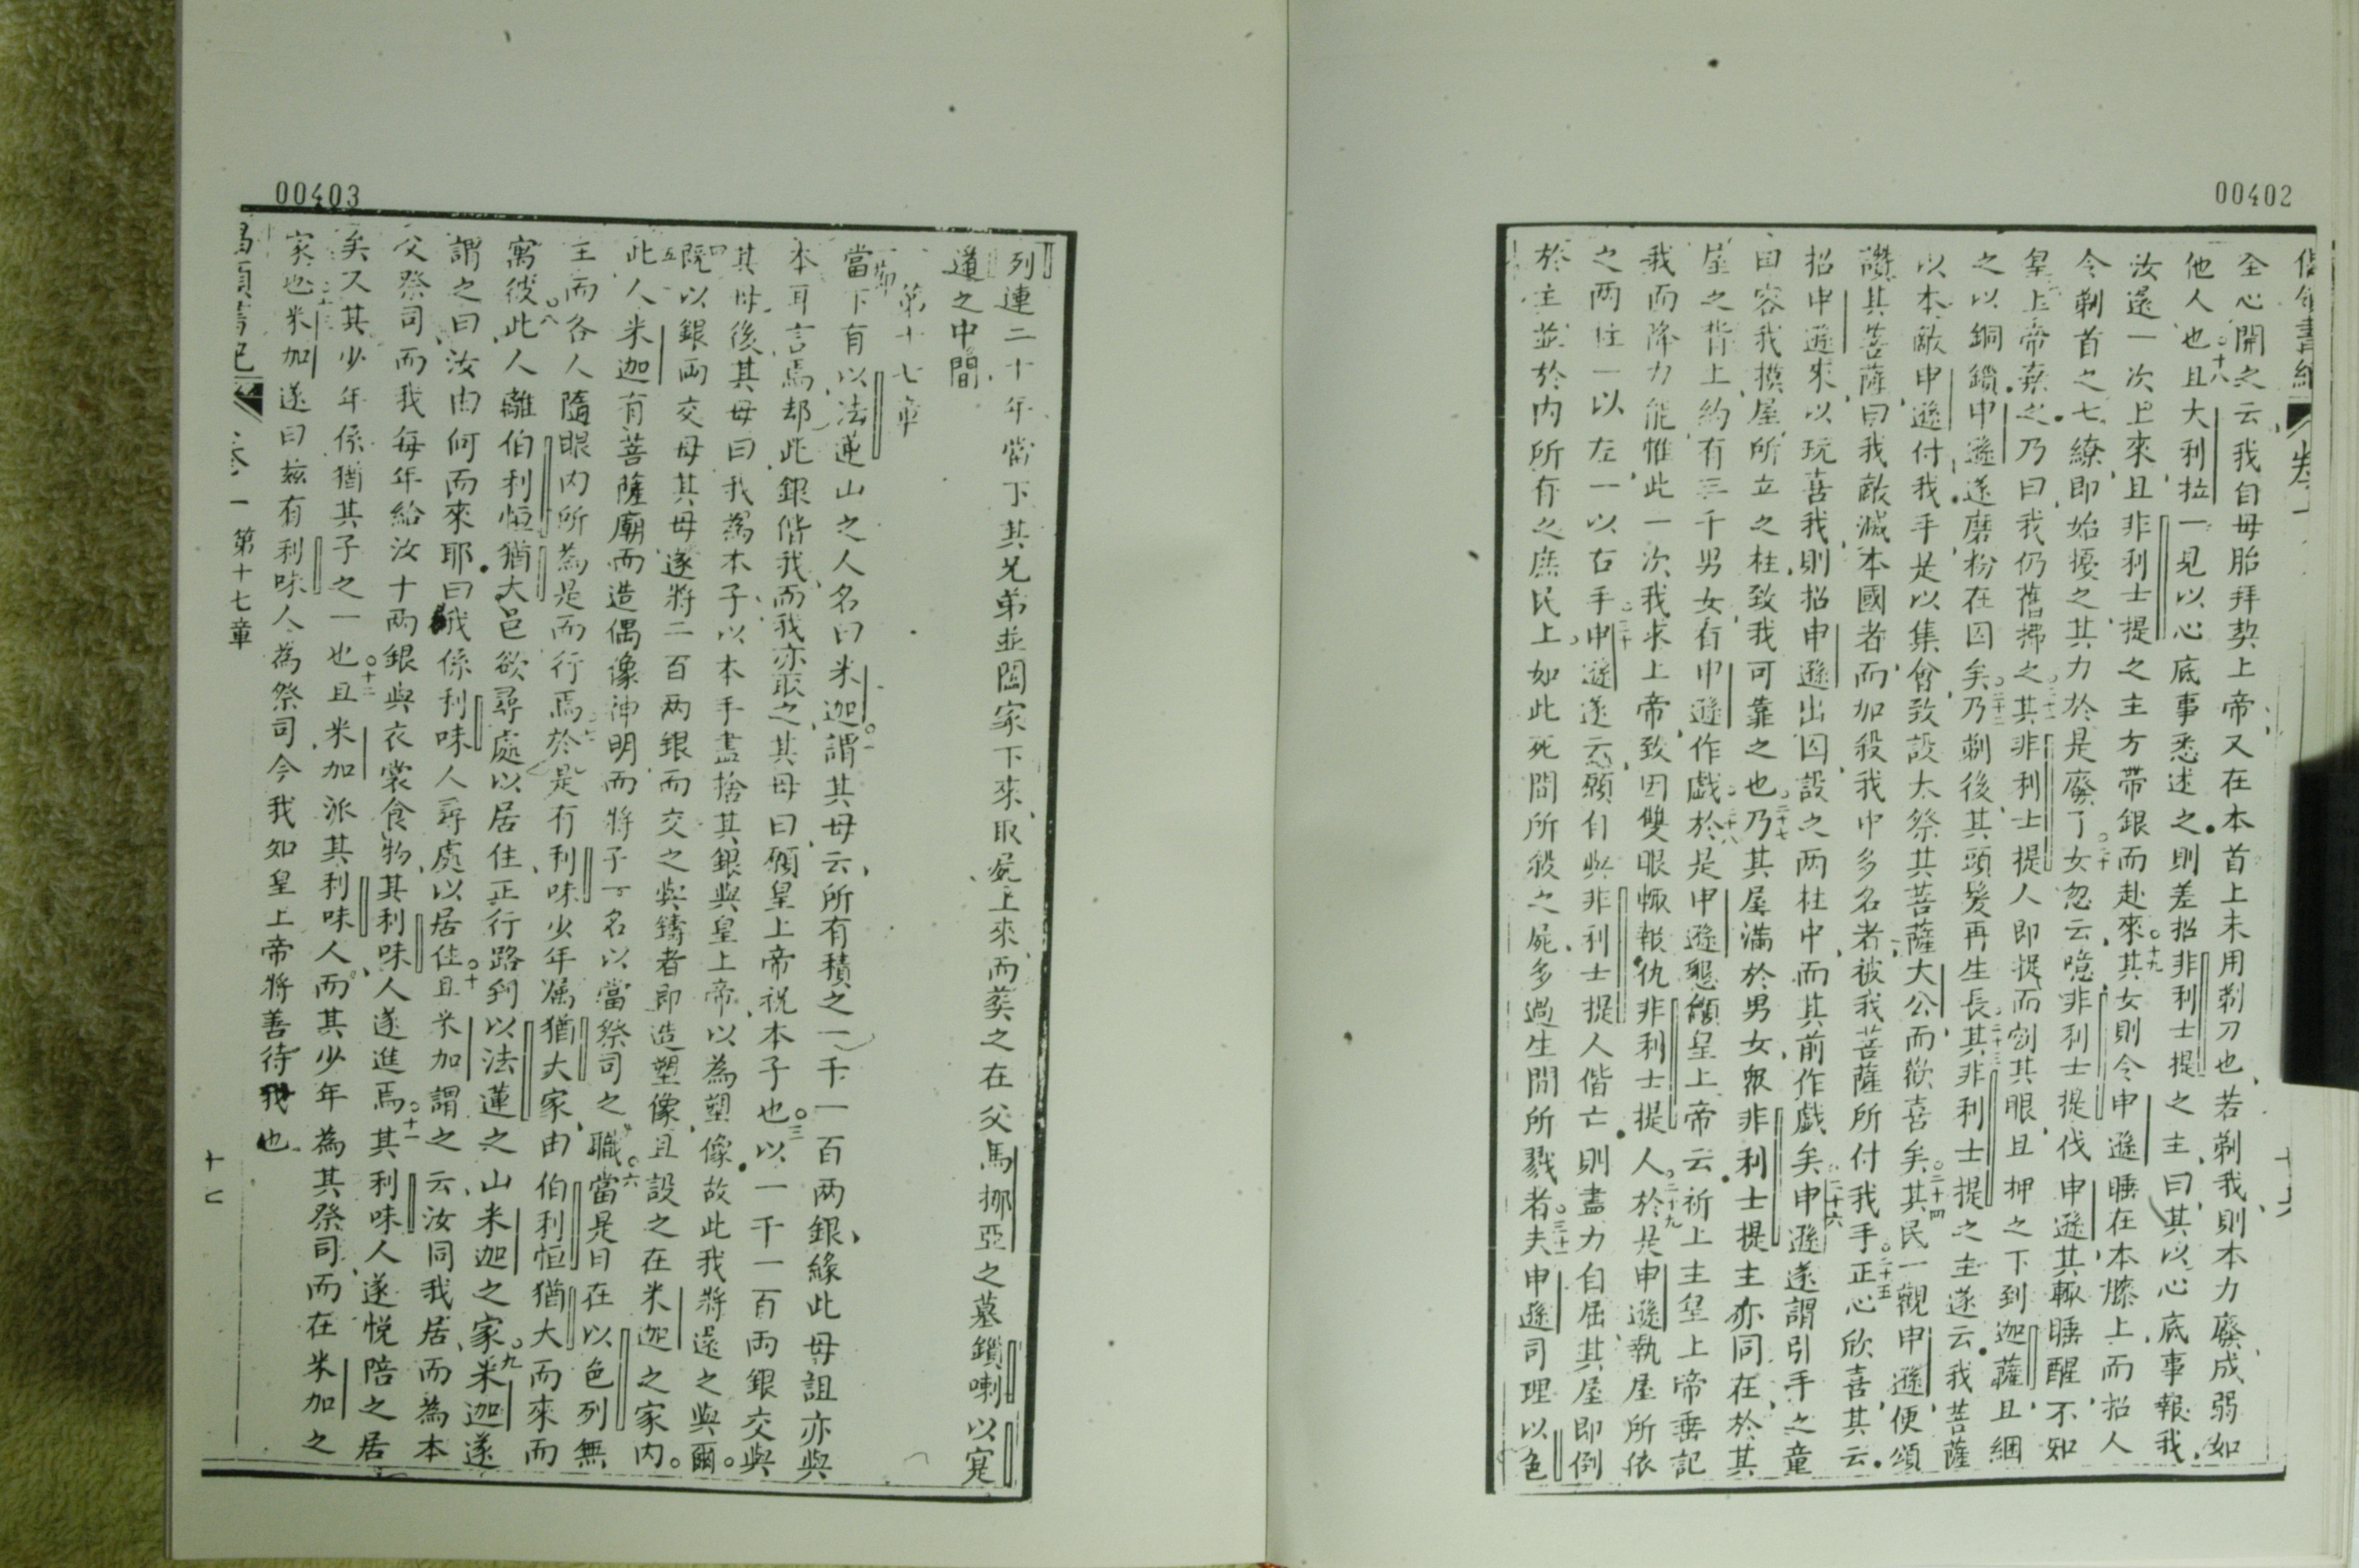 00402
全心開之云我自母胎拜契上帝又在本首上未用剃刀也若剃我則本力廢成弱如
他人也十八且大利拉一見以心底事悉述之則差招非利士提之主曰其以心底事報我
汝還一次上來且非利士提之主方帶銀而赴來十九其女則令申遜睡在本膝上而招人
令剃首之七繚即始擾之其力於是廢了二十女忽云噫非利士提伐申遜其輒睡醒不知
皇上帝棄之乃曰我仍舊拂之二十一其非利士提人即捉而剜其眼且押之下到迦薩且綑
之以銅鎖申遜遂磨粉在囚矣二十二乃剃後其頭髮再生長二十三其非利士提之主遂云我菩薩
以本敵申遜付我手是以集會致設大祭其菩薩大公而歡喜矣二十四其民一觀申遜便頌
讚其菩薩曰我敵滅本國者而加殺我中多名者被我菩薩所付我手二十五正心欣喜其云
招申遜來以玩喜我則招申遜出囚設之兩柱中而其前作戲矣二十六申遜遂謂引手之童
曰容我摸屋所立之柱致我可靠之也二十七乃其屋滿於男女眾非利士提主亦同在於其
屋之背上約有三千男女有申遜作戲二十八於是申遜懇籲皇上帝云祈上主皇上帝垂記
我而降力能惟此一次我求上帝致因雙眼輒報仇非利士提人二十九於是申遜執屋所依
之兩柱一以左一以右手三十申遜遂云願自與非利士提人偕亡則盡力自屈其屋即倒
於主並於內所有之庶民上如此死間所殺之屍多過生間所戮者三十一夫申遜司理以色
00403
列連二十年當下其兄弟並闔家下來取屍上來而葬之在父馬挪亞之墓鎖喇以寔
道之中間
第十七章
當下有以法蓮山之人名曰米迦一謂其母云所有積之一千一百兩銀緣此母詛亦與
本耳言焉却此銀偕我而我亦取之其母曰願皇上帝祝本子也三以一千一百兩銀交與
其母後其母曰我為本子以本手盡捨其銀與皇上帝以為塑像故此我將還之與爾
四既以銀兩交母其母遂將二百兩銀而交之與鑄者即造塑像且設之在米迦之家內
五此人米迦有菩薩廟而造偶像神明而將子一名以當祭司之職六當是日在以色列無
王而各人隨眼內所為是而行焉七於是有利味少年屬猶大家由伯利恒猶大而來而
寓彼八此人離伯利恒猶大邑欲尋處以居住正行路到以法蓮之山米迦之家九米迦遂
謂之曰汝由何而來耶曰我係利味人尋處以居住十且米加謂之云汝同我居而為本
父祭司而我每年給汝十兩銀與衣裳食物其利味人遂進焉十一其利味人遂悅陪之居
矣又其少年係猶其子之一也十二且米加派其利味人而其少年為其祭司而在米加之
家也十三米加遂曰茲有利味人為祭司今我知皇上帝將善待我也
卷一 第十七章